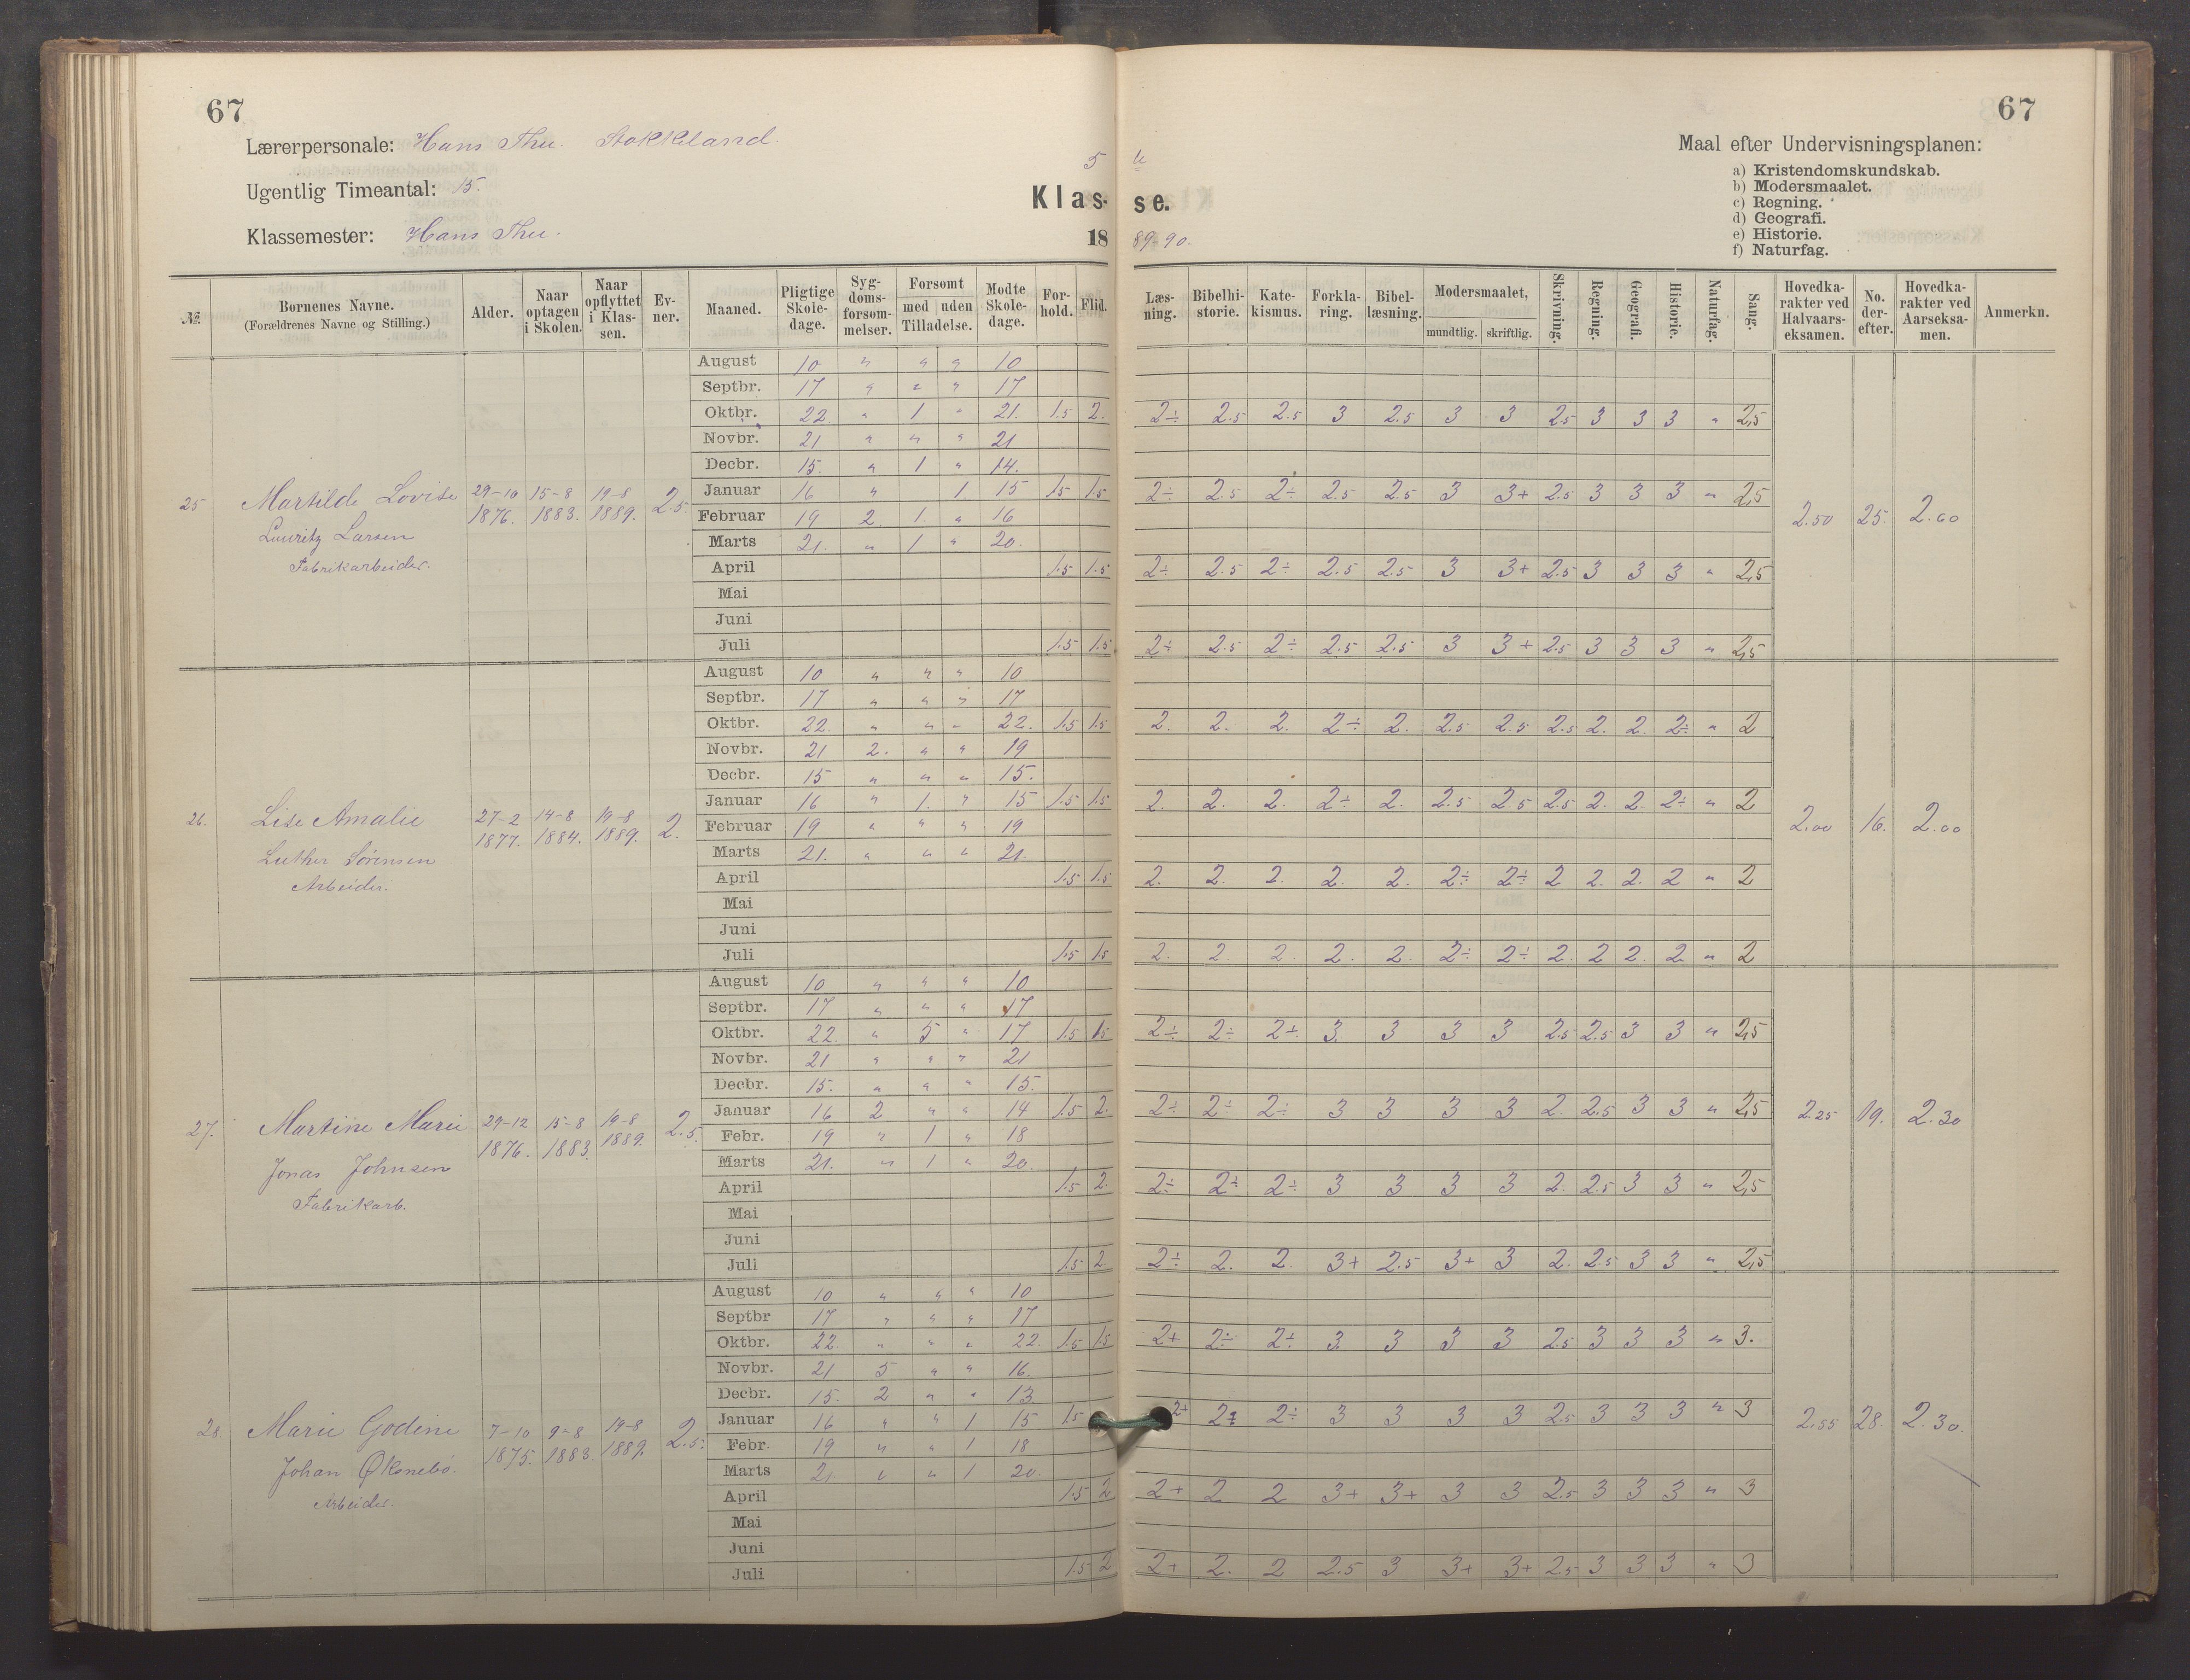 67
67
Lærerpersonale: Hans Thu. Stokkeland.
Ugentlig Timeantal: 15.
Klassemester: Hans Thu.
5 te
Klas- se.
18 89-90.
Maal efter Undervisningsplanen:
a) Kristendomskundskab.
b) Modersmaalet.
c) Regning.
d) Geografi.
e) Historie.
f) Naturfag.
№ | Børnenes Navne. (Forældrenes Navne og Stilling.) | Alder. | Naar optagen i Skolen. | Naar opflyttet i Klassen. | Evner. | Maaned. | Pligtige Skoledage. | Sygdomsforsømmelser. | Forsømt med uden Tilladelse. | Mødte Skoledage. | Forhold. | Flid. | Læsning. | Bibelhistorie. | Katekismus. | Forklaring. | Bibellæsning. | Modersmaalet, mundtlig. skriftlig. | Skrivning. | Regning. | Geografi. | Historie. | Naturfag. | Sang. | Hovedkarakter ved Halvaarseksamen. | No. derefter. | Hovedkarakter ved Aarseksamen. | Anmerkn.
25 Martilde Lovise 29-10 1876. 15-8 1883. 19-8 1889. 2.5.
Lauritz Larsen
Fabrikarbeider.
August 10 " " " 10
Septbr. 17 " " " 17
Oktbr. 22 " 1 " 21. 1.5 2. 2÷ 2.5 2.5 3 2.5 3 3 2.5 3 3 3 " 2,5
Novbr. 21 " " " 21
Decbr. 15. " 1 " 14.
Januar 16 " 1 15 1.5 1.5 2÷ 2.5 2÷ 2.5 2.5 3 3+ 2.5 3 3 3 " 2,5
Februar 19 2. 1. " 16
2.50 25. 2.60
Marts 21. " 1 " 20.
April 1.5 1.5 2÷ 2.5 2÷ 2.5 2.5 3 3+ 2.5 3 3 3 " 2,5
Mai
Juni
Juli 1.5 1.5 2÷ 2.5 2÷ 2.5 2.5 3 3+ 2.5 3 3 3 " 2,5
26. Lise Amalie 27-2 1877. 14-8 1884. 19-8 1889. 2.
Luther Sørensen
Arbeider.
August 10 " " " 10
Septbr. 17 " " " 17
Oktbr. 22. " " " 22. 1.5 1.5 2. 2. 2. 2÷ 2. 2.5 2.5 2.5 2. 2. 2÷ " 2
Novbr. 21 2. " " 19
Decbr. 15 " " " 15.
Januar 16 " 1. " 15 1.5 1.5 2. 2. 2. 2÷ 2. 2.5 2.5 2.5 2. 2. 2÷ " 2
Februar 19 " " " 19
2.00 16. 2.00
Marts 21. " " " 21.
April 1.5 1.5 2. 2. 2. 2. 2. 2÷ 2÷ 2 2. 2. 2 " 2
Mai
Juni
Juli 1.5 1.5 2. 2 2 2. 2. 2÷ 2÷ 2. 2 2. 2 " 2
27. Martine Marie 29-12 1876. 15-8 1883. 19-8 1889. 2.5.
Jonas Johnsen
Fabrikarb.
August 10 " " " 10
Septbr. 17 " " " 17
Oktbr. 22. " 5 " 17 1.5 1.5 2÷ 2÷ 2÷ 3. 3 3 3 2.5 2.5 3 3 " 2,5
Novbr. 21 " " " 21
Decbr. 15. " " " 15.
Januar 16 2 " " 14 1.5 2. 2÷ 2÷ 2÷ 3 3 3 3 2. 2.5 3 3 " 2,5
2.25 19. 2.30
Febr. 19 " 1 " 18
Marts 21. " 1 " 20.
April 1.5 2. 2÷ 2÷ 2÷ 3 3 3 3 2. 2.5 3 3 " 2,5
Mai
Juni
Juli 1.5 2. 2÷ 2. 2. 3+ 2.5 3+ 3 2. 2.5 3 3 " 2,5
28. Marie Godine 7-10 1875. 9-8 1883. 19-8 1889. 2.5.
Johan
Arbeider.
August 10 " " " 10
Septbr 17 " " " 17
Oktbr. 22. " " " 22. 1.5 1.5 2+ 2÷ 2÷ 3. 3 3 3 2.5 3 3 3 " 3.
Novbr. 21 5 " " 16.
Decbr. 15. 2 " " 13
Januar 16 " " 1 15 1.5 2+ 2÷ 3 3 3 3 2.5 3 3 3 " 3
2.55 28. 2.30.
Febr. 19 " " 1 18
Marts 21. " " 1 20.
April 1.5 2 2+ 2 2 3+ 3+ 3 3 2.5 3 3 3 " 3
Mai
Juni
Juli 1.5 2 2+ 2. 2 2.5 3 3+ 3+ 2.5 3 3 3 " 3